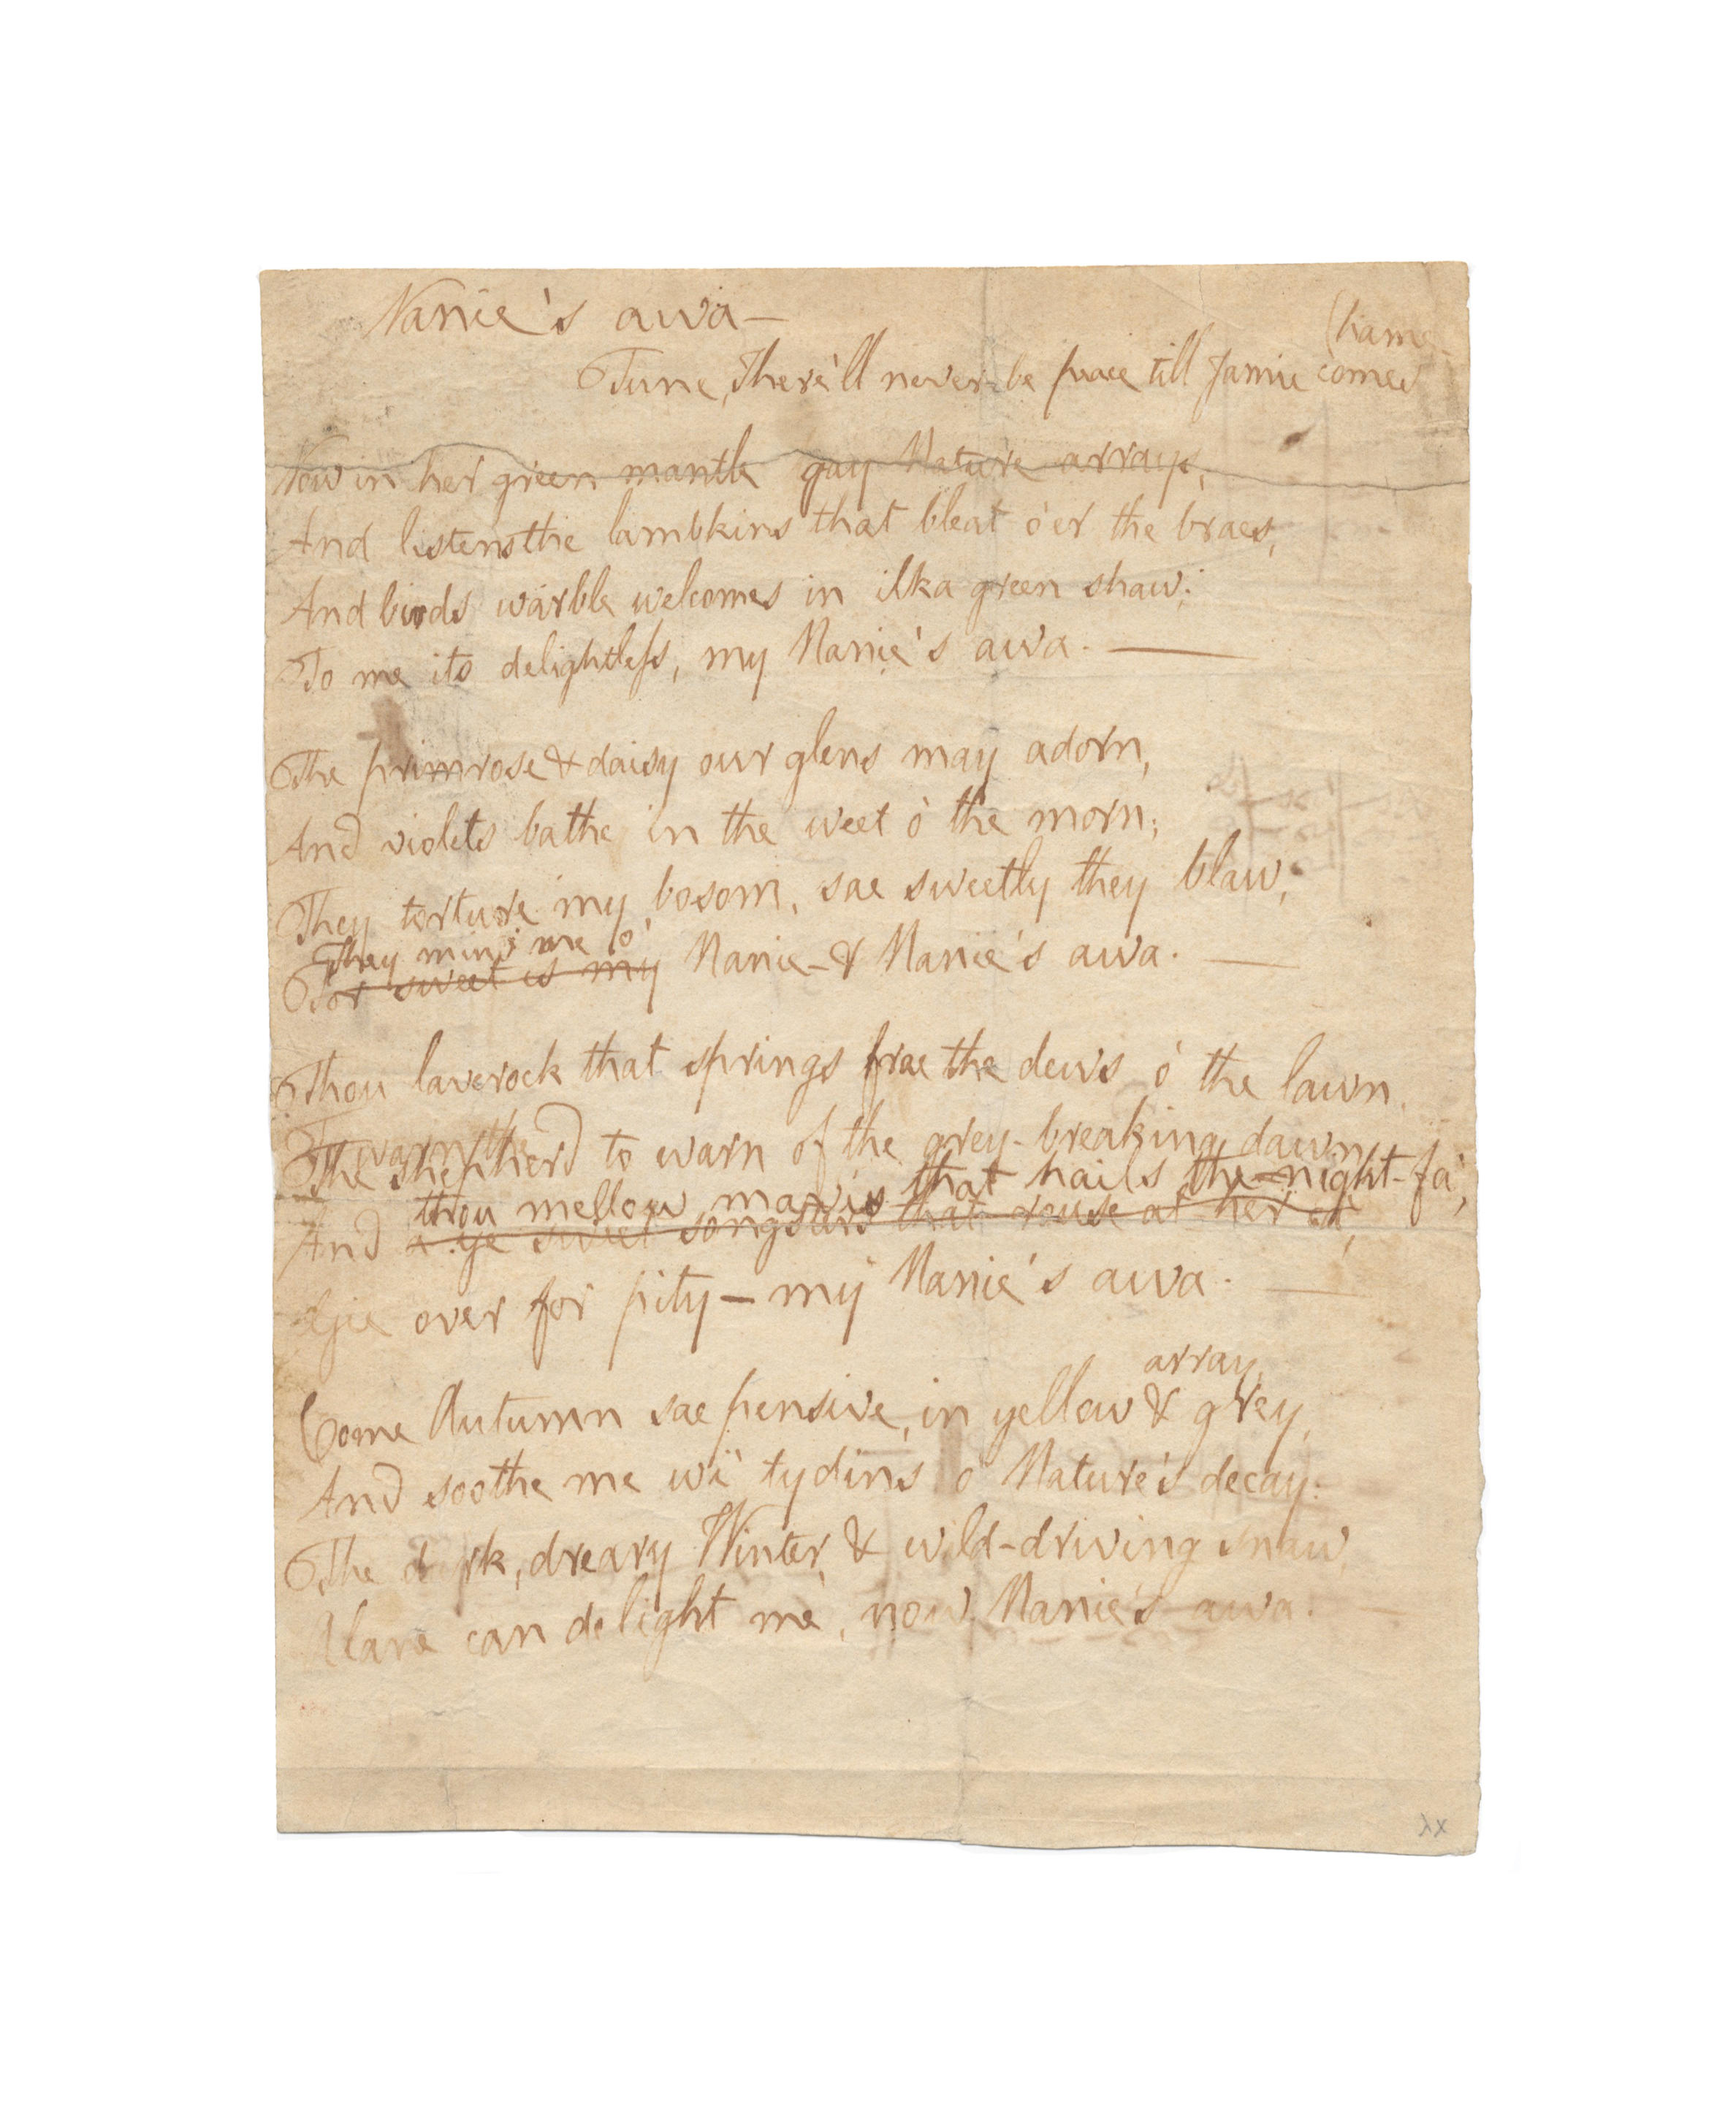 Nanie's awa —
(hame
Tune, There'll never be peace till Jamie comes
Now in her green mantle gay Nature arrays,
And listens the lambkins that bleat o'er the braes,
And birds warble welcomes in ilka green shaw;
To me its delightless, my Nanie's awa. —
The primrose & daisy our glens may adorn,
And violets bathe in the weet o' the morn;
They torture my bosom, sae sweetly they blaw,
They mind me o'
For sweet is my Nanie — & Nanie's awa. —
Thou laverock that springs frae the dews o' the lawn
The shepherd to warn of the grey-breaking dawn,
thou mellow mavis that hails the night-fa',
And ye sweet songsters that rouse at her
Gie over for pity — my Nanie's awa. —
array
Come Autumn sae pensive, in yellow & grey,
And soothe me wi' tydins o' Nature's decay:
The dark, dreary Winter, & wild-driving snaw,
Alane can delight me, now Nanie's awa. —
XX